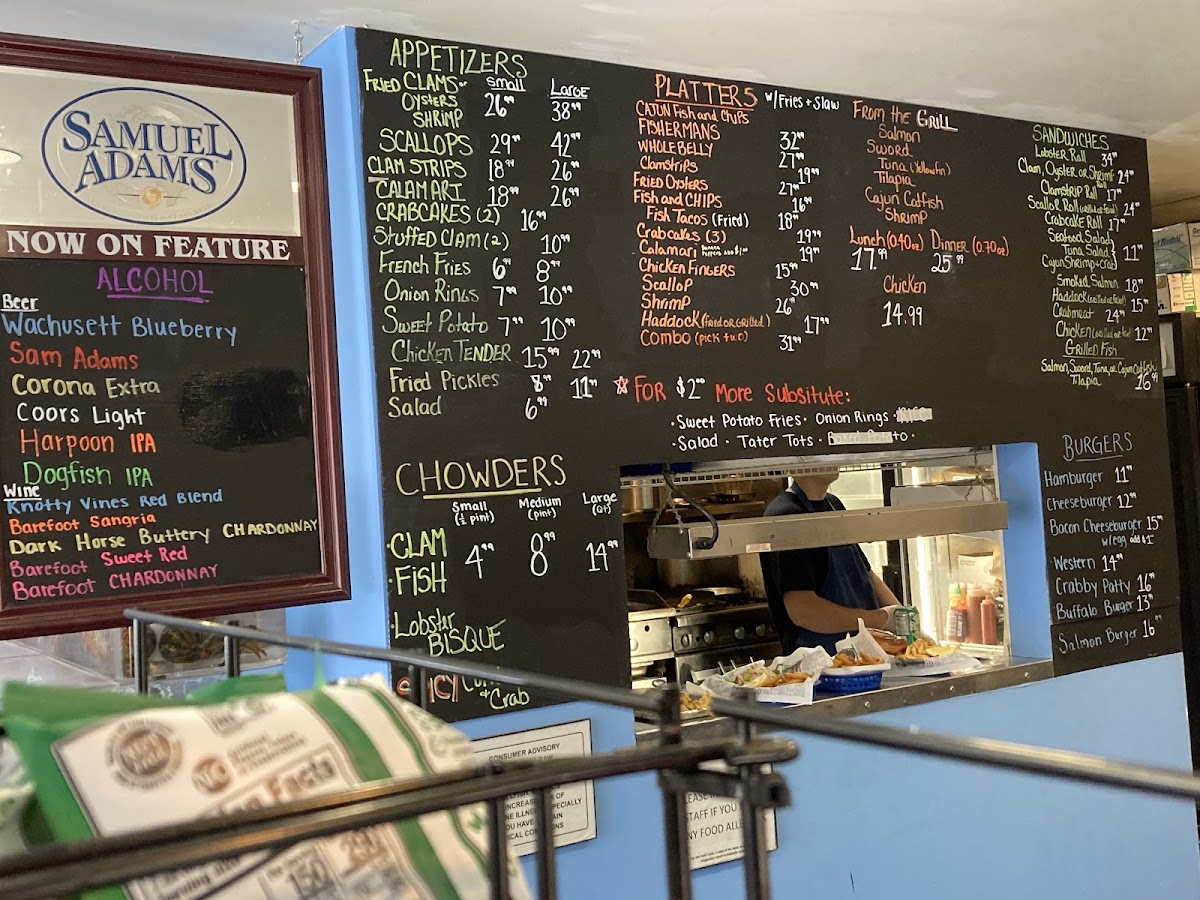 SAMUEL
ADAMS
NOW ON FEATURE
ALCOHOL
Beer
Wachusett Blueberry
Sam Adams
Corona Extra
Coors Light
Harpoon IPA
Dogfish IPA
Wine
Knotty Vines Red Blend
Barefoot Sangria
Dark Horse Buttery CHARDONNAY
Barefoot Sweet Red
Barefoot CHARDONNAY
APPETIZERS
Small Large
FRIED CLAMS or
OYSTERS 26.99 38.99
SHRIMP
SCALLOPS 29.99 42.99
CLAM STRIPS 18.99 26.99
CALAMARI 18.99 26.99
CRABCAKES (2) 16.99
Stuffed Clam (2) 10.99
French Fries 6.99 8.99
Onion Rings 7.99 10.99
Sweet Potato 7.99 10.99
Chicken TENDER 15.99 22.99
Fried Pickles 8.99 11.99
Salad 6.99
CHOWDERS
Small (½ pint) Medium (pint) Large (Qt)
·CLAM 4.99 8.99 14.99
·FISH
·Lobster
BISQUE
SPICY
& Crab
PLATTERS w/Fries + Slaw
CAJUN Fish and Chips
FISHERMANS 32.99
WHOLE BELLY 27.99
Clamstrips 19.99
FRIED OYSTERS 27.99
Fish and CHIPS 16.99
Fish Tacos (Fried) 18.99
Crabcakes (3) 19.99
Calamari 19.99
Chicken Fingers 15.99
Scallop 30.99
Shrimp 26.99
Haddock (fried OR Grilled) 17.99
Combo (pick two) 31.99
From the GRILL
Salmon
Sword
Tuna (Yellowfin)
Tilapia
Cajun Catfish
Shrimp
Lunch (0.40oz) Dinner (0.70oz)
17.99 25.99
Chicken
14.99
☆FOR $2.00 More Subsitute:
·Sweet Potato Fries· Onion Rings ·
·Salad · Tater Tots ·
SANDWICHES
Lobster Roll 34.99
Clam, Oyster or Shrimp 24.99
Clamstrip Roll 17.99
Scallop Roll 24.99
Crabcake Roll 17.99
Seafood Salad
Tuna Salad } 11.99
Cajun Shrimp & crab
Smoked Salmon 18.99
Haddock 15.99
Crabmeat 24.99
Chicken 12.99
Grilled Fish
Salmon, Sword, Tuna, or Cajun Catfish
Tilapia 16.99
BURGERS
Hamburger 11.99
Cheeseburger 12.99
Bacon Cheeseburger 15.99
w/egg add $1.00
Western 14.99
Crabby Patty 16.99
Buffalo Burger 13.99
Salmon Burger 16.99
CONSUMER ADVISORY
STAFF IF YOU
NY FOOD ALLE
NO
150
230